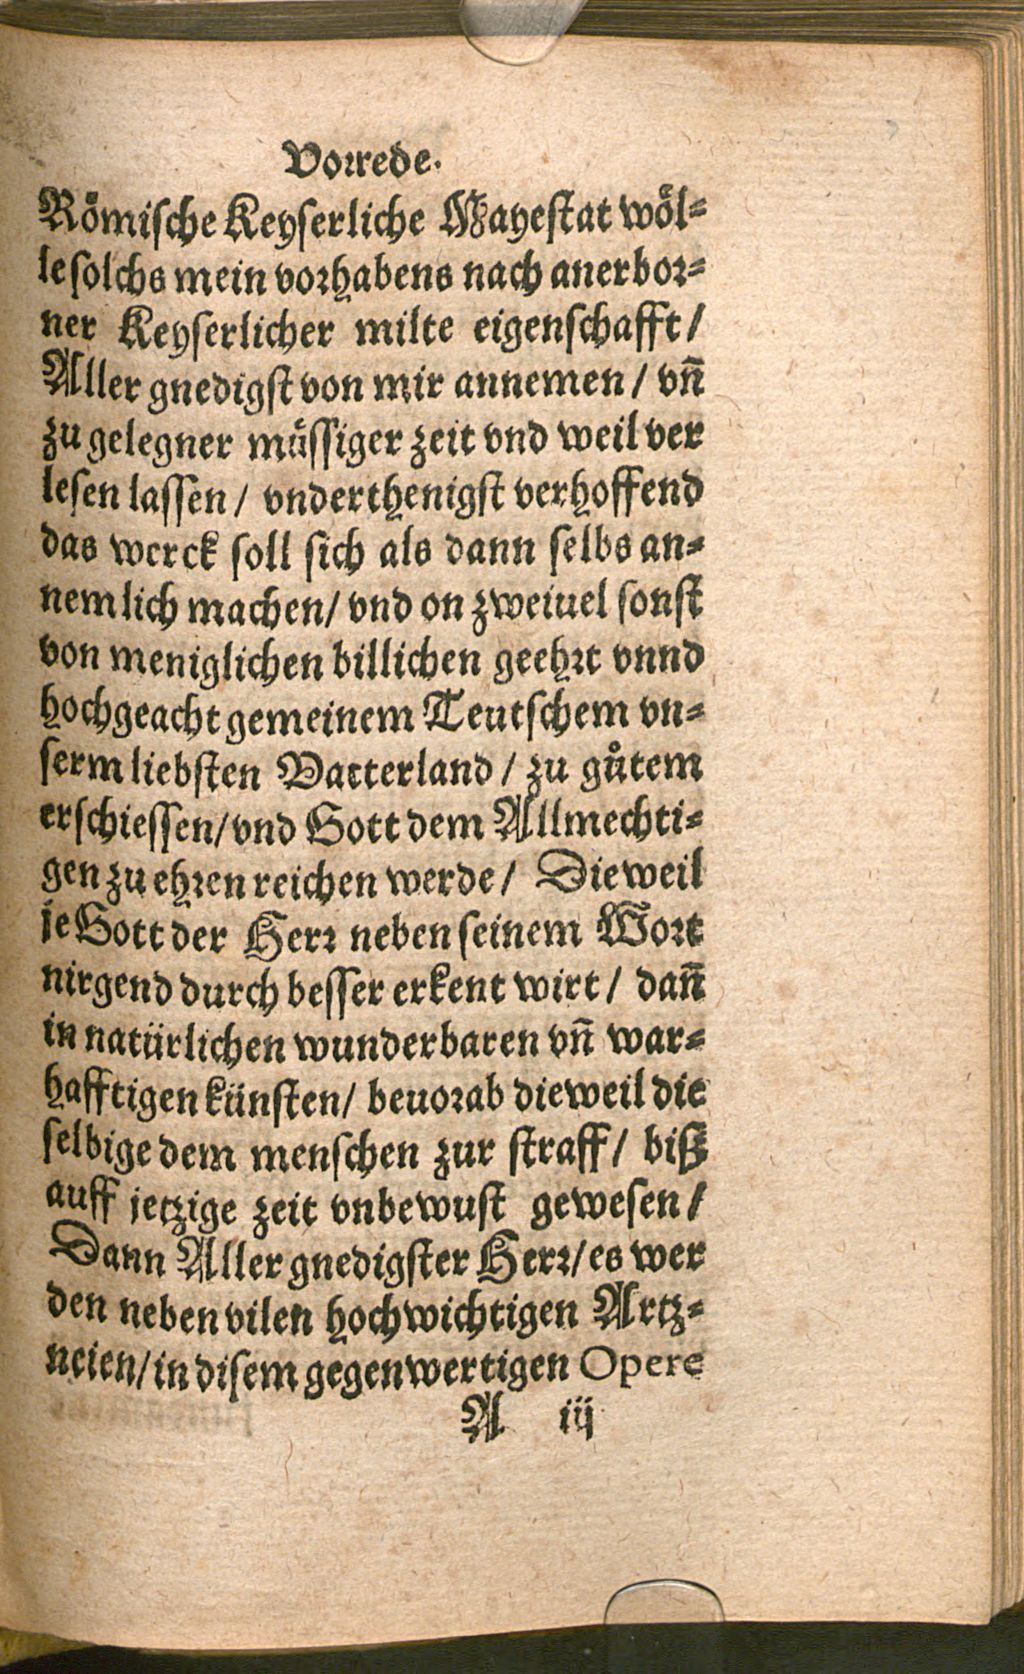 Vorrede.
Römische Keyserliche Mayestat wöl⸗
le solchs mein vorhabens nach anerbor⸗
ner Keyserlicher milte eigenschafft /
Aller gnedigst von mir annemen / vñ
zu gelegner müssiger zeit vnd weil ver
lesen lassen / vnderthenigst verhoffend
das werck soll sich als dann selbs an⸗
nemlich machen / vnd on zweiuel sonst
von meniglichen billichen geehrt vnnd
hochgeacht gemeinem Teutschem vn⸗
serm liebsten Vatterland / zu gůtem
erschiessen / vnd Gott dem Allmechti⸗
gen zu ehren reichen werde / Die weil
je Gott der Herr neben seinem Wort
nirgend durch besser erkent wirt / dañ
in natürlichen wunderbaren vñ war⸗
hafftigen künsten / beuorab die weil die
selbige dem menschen zur straff / biß
auff jetzige zeit vnbewust gewesen /
Dann Aller gnedigster Herr / es wer
den neben vilen hochwichtigen Artz⸗
neien / in disem gegenwertigen Opere
A iij